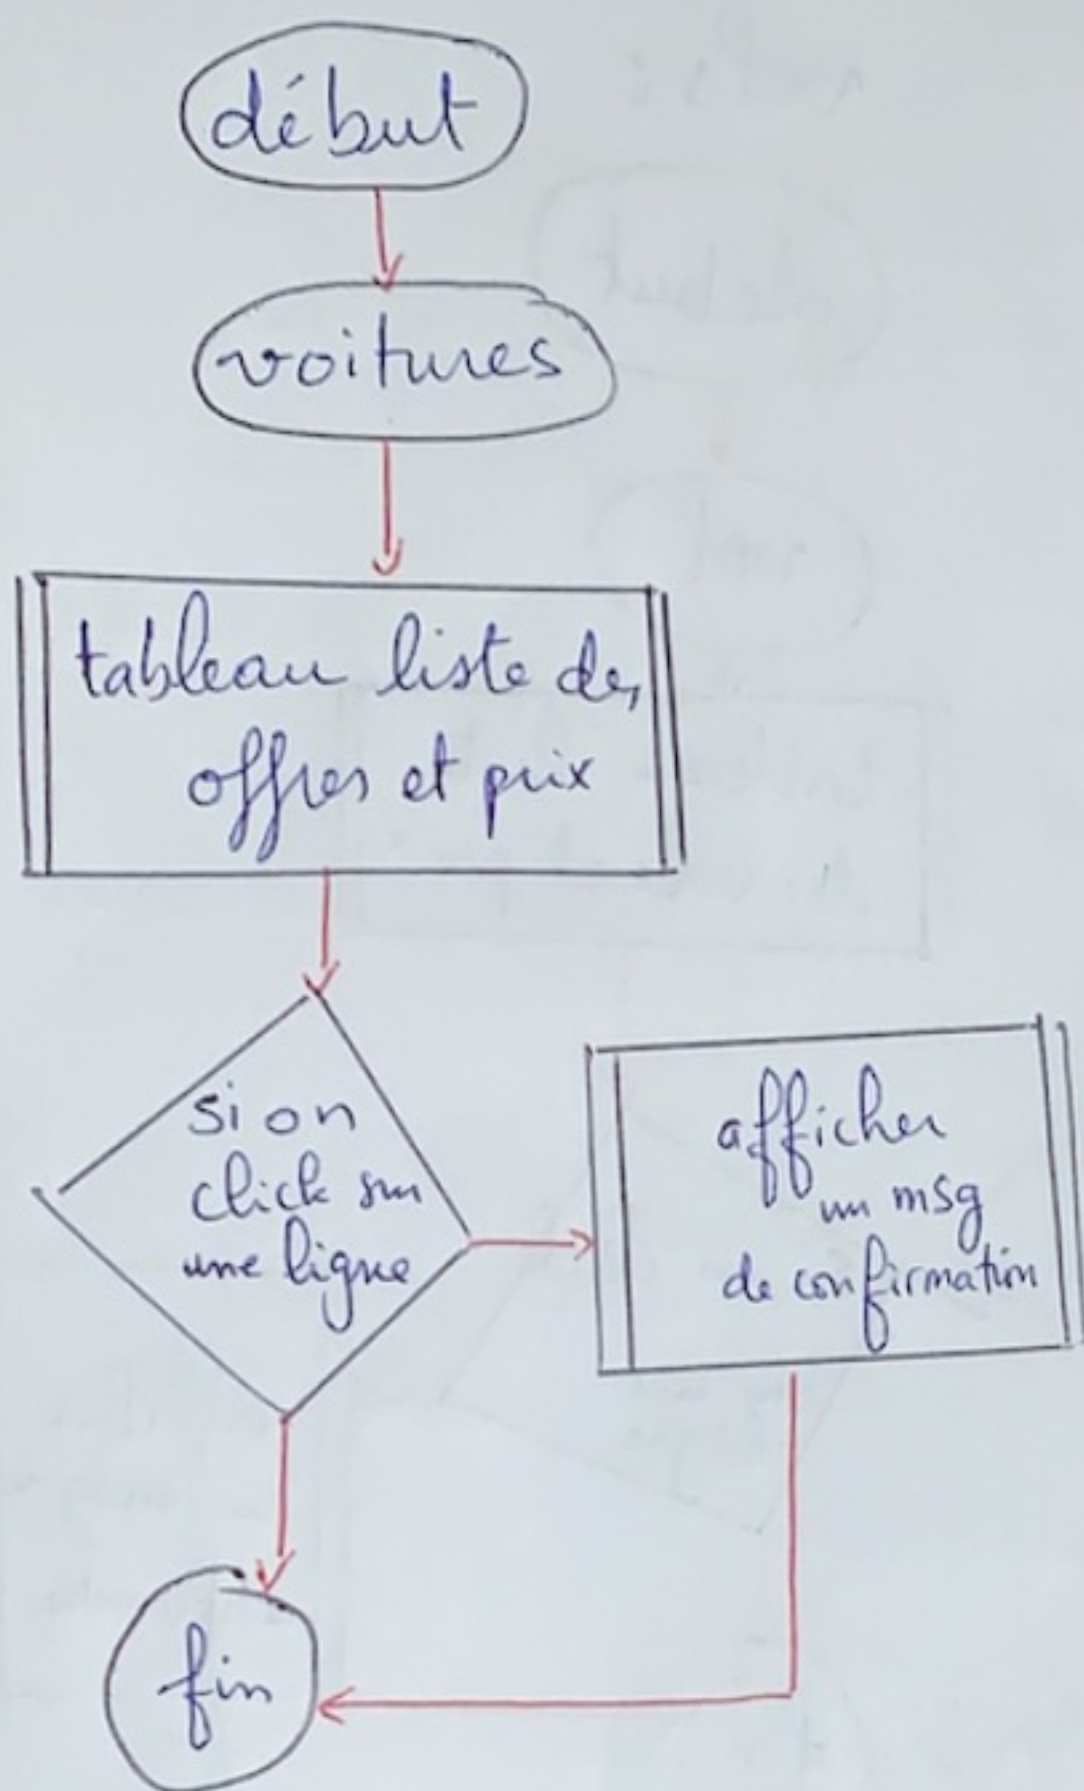 début
voitures
tableau liste des
offres et prix
si on
click sur
une ligne
afficher
un msg
de confirmation
fin